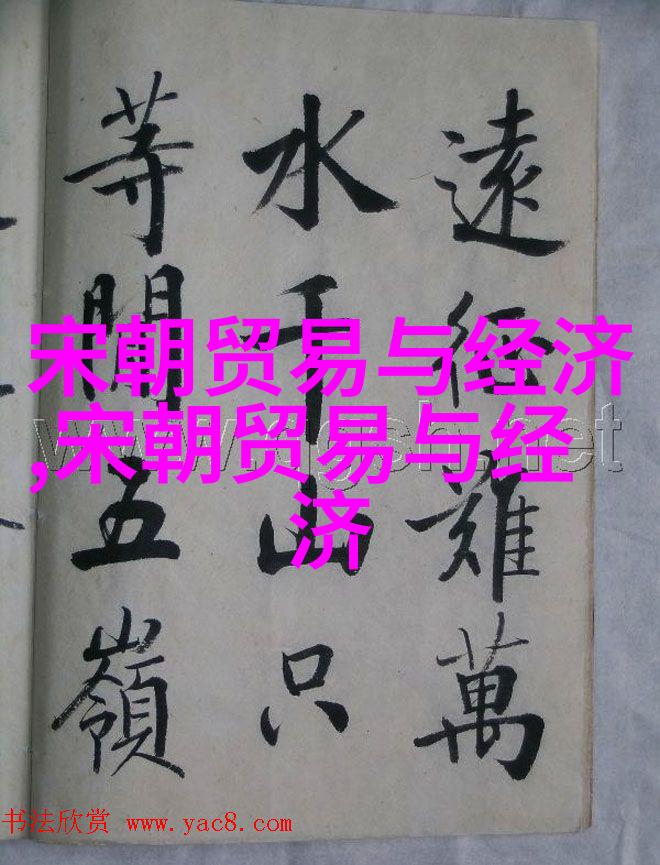 遠征難萬
水千山只
等閒五嶺
宋朝贸易与经济
,宋朝贸易与经
济
书法欣赏 www.yac8.com